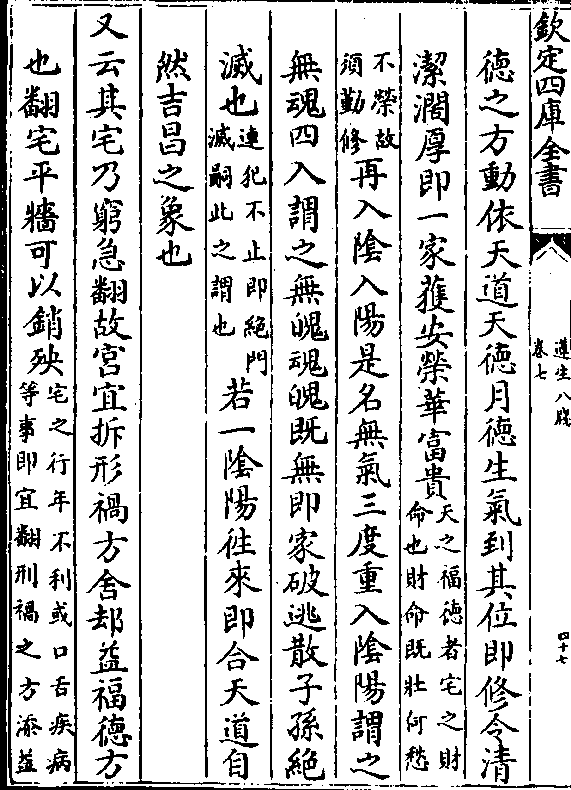 欽定四庫全書
遵生八牋
卷七
四十七
德之方動依天道天德月德生氣到其位即修令清
潔濶厚即一家獲安榮華富貴天之福德者宅之財命也財命既壯何愁
不榮故須勤修再入陰入陽是名無氣三度重入陰陽謂之
無魂四入謂之無魄魂魄既無即家破逃散子孫絶
滅也連犯不止即絶門滅嗣此之謂也若一陰陽徃來即合天道自
然吉昌之象也
又云其宅乃窮急翻故宫宜拆形禍方舍却益福德方
也翻宅平牆可以銷殃宅之行年不利或口舌疾病等事即宜翻刑禍之方添益